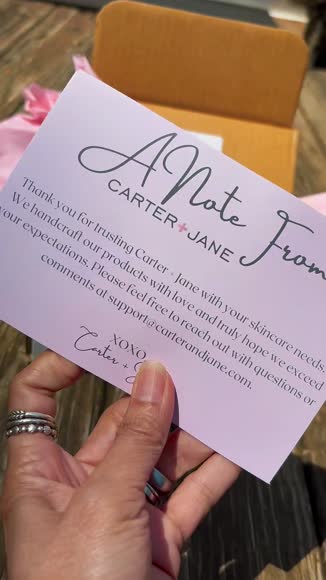 A Note From
CARTER+JANE
Thank you for trusting Carter + Jane with your skincare needs.
We handcraft our products with love and truly hope we exceed
your expectations. Please feel free to reach out with questions or
comments at support@carterandjane.com.
XOXO
Carter +